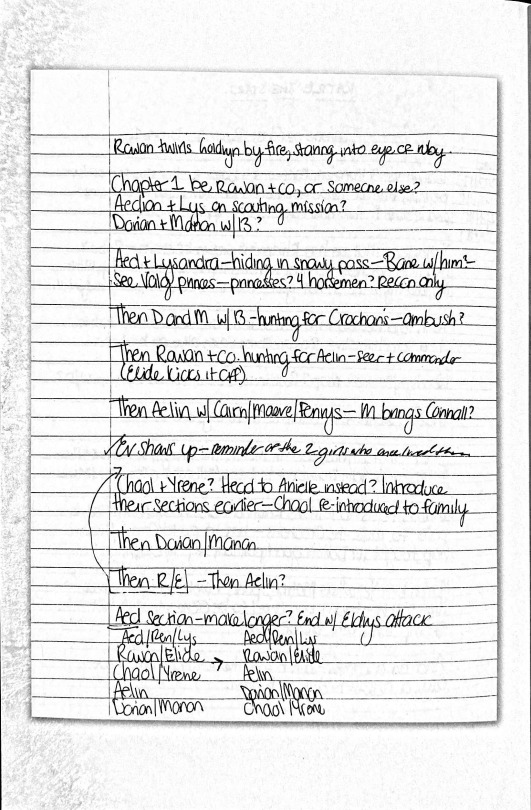 Rowan twirls Goldryn by fire, staring into eye of ruby.
Chapter 1 be Rowan + co, or someone else?
Aedion + Lys on scouting mission?
Dorian + Manon w/ 13?
Aed + Lysandra—hiding in snowy pass—Bane w/ him?
See Valg princes—princesses? 4 horsemen? Recon only
Then D and M w/ 13—hunting for Crochans—ambush?
Then Rowan + co. hunting for Aelin—seer + commander
(Elide kicks it off)
Then Aelin w/ Cairn/Maeve/Fenrys—M brings Connall?
Ev shows up—reminder of the 2 girls who once lived
Chaol + Yrene? Head to Anielle instead? Introduce
their sections earlier—Chaol re-introduced to family
Then Dorian/Manon
Then R/E —Then Aelin?
Aed section—make longer? End w/ Eldrys attack
Aed/Ren/Lys Aed/Ren/Lys
Rowan/Elide → Rowan/Elide
Chaol/Yrene Aelin
Aelin Dorian/Manon
Dorian/Manon Chaol/Yrene